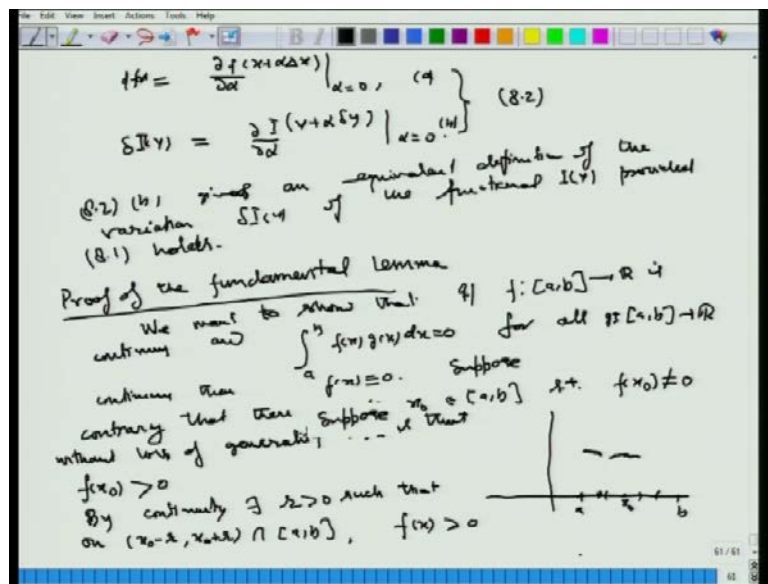 File Edit View Insert Actions Tools Help
df(x) = ∂f(x+αΔx)/∂α |α=0, (a)
(8.2)
δI(y) = ∂I(y+αδy)/∂α |α=0 (b)
(8.2) (b) gives an equivalent definition of the
variation δI(y) of the functional I(y) provided
(8.1) holds.
Proof of the fundamental Lemma
We want to show that if f: [a,b] → ℝ is
continuous and ∫_a^b f(x) g(x) dx = 0 for all g: [a,b] → ℝ
continuous then f(x) ≡ 0. Suppose
contrary that there x₀ ∈ [a,b] s.t. f(x₀) ≠ 0
without loss of generality suppose that
f(x₀) > 0
By continuity ∃ r>0 such that
on (x₀-r, x₀+r) ∩ [a,b], f(x) > 0
a x₀ b
61 / 61
61